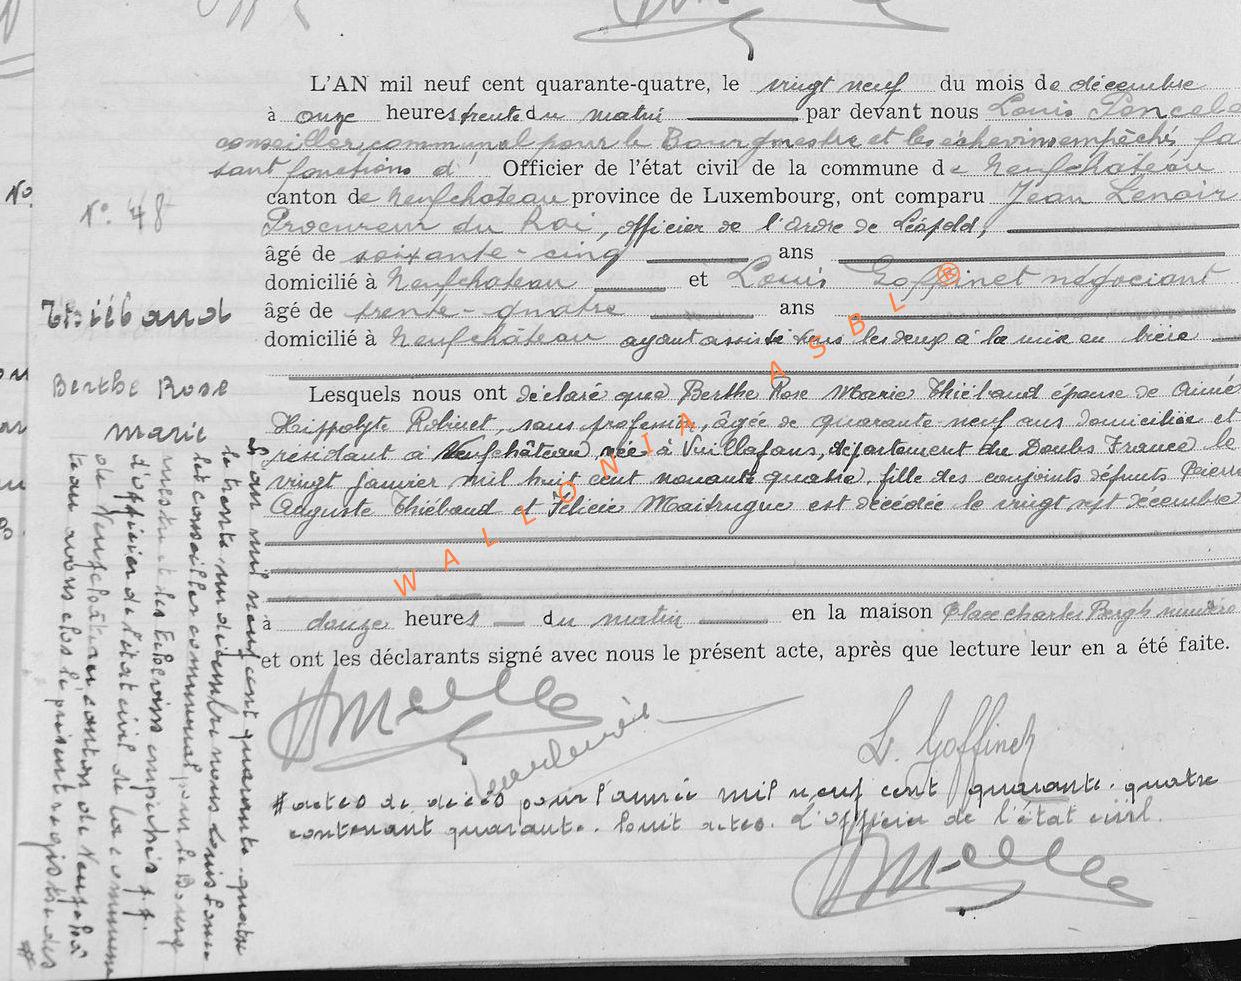 L'AN mil neuf cent quarante-quatre, le vingt neuf du mois de décembre
à onze heures trente du matin par devant nous Louis Poncele
conseiller communal pour le Bourgmestre et les échevins empêchés fai
sant fonctions d' Officier de l'état civil de la commune de Neufchâteau
No.
N°. 48
canton de Neufchateau province de Luxembourg, ont comparu Jean Lenoir
Procureur du Roi, officier de l'Ordre de Léopold,
âgé de soixante-cinq ans
domicilié à Neufchateau et Louis Goffinet négociant
Thiébaud
âgé de trente-quatre ans
domicilié à Neufchâteau ayant assisté tous les deux à la mise en bière
Berthe Rose
Marie
Lesquels nous ont déclaré que Berthe Rose Marie Thiébaud épouse de Aimé
Hippolyte Robinet, sans profession, âgée de quarante-neuf ans domiciliée et
résidant à Neufchâteau née à Vuillafans, département du Doubs France le
vingt janvier mil huit cent nonante quatre, fille des conjoints défunts Pierre
Auguste Thiébaud et Félicie Maitrugue est décédée le vingt sept décembre
à douze heures du matin en la maison Place Charles Bergh numéro
et ont les déclarants signé avec nous le présent acte, après que lecture leur en a été faite.
L. Goffinet
# actes de décès pour l'année mil neuf cent quarante-quatre
contenant quarante-huit actes. L'officier de l'état civil.
L'an mil neuf cent quarante-quatre
le trente un décembre nous Louis Ponce
let conseiller communal pour le Bourg
mestre et les Echevins empêchés f.f.
d'officier de l'état civil de la commune
de Neufchâteau canton de Neufchâ
teau avons clos le présent registre des #
WALLONIA ASBL ®